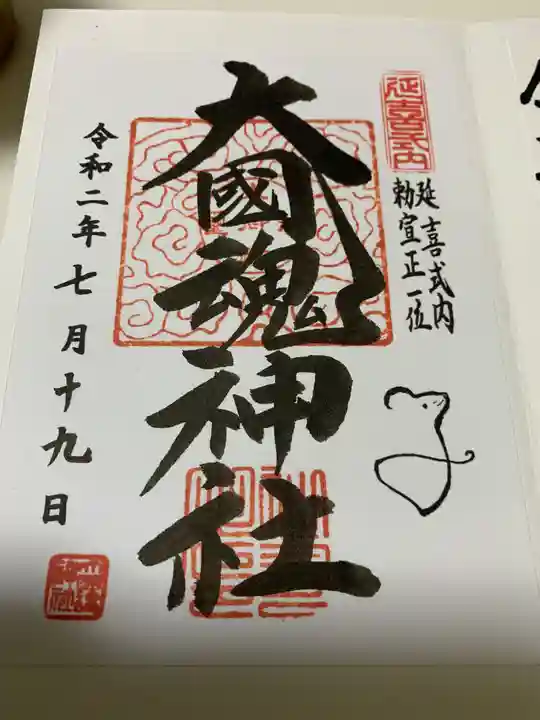 延喜式内
延喜式内
勅宣正一位
大國魂神社
令和二年七月十九日